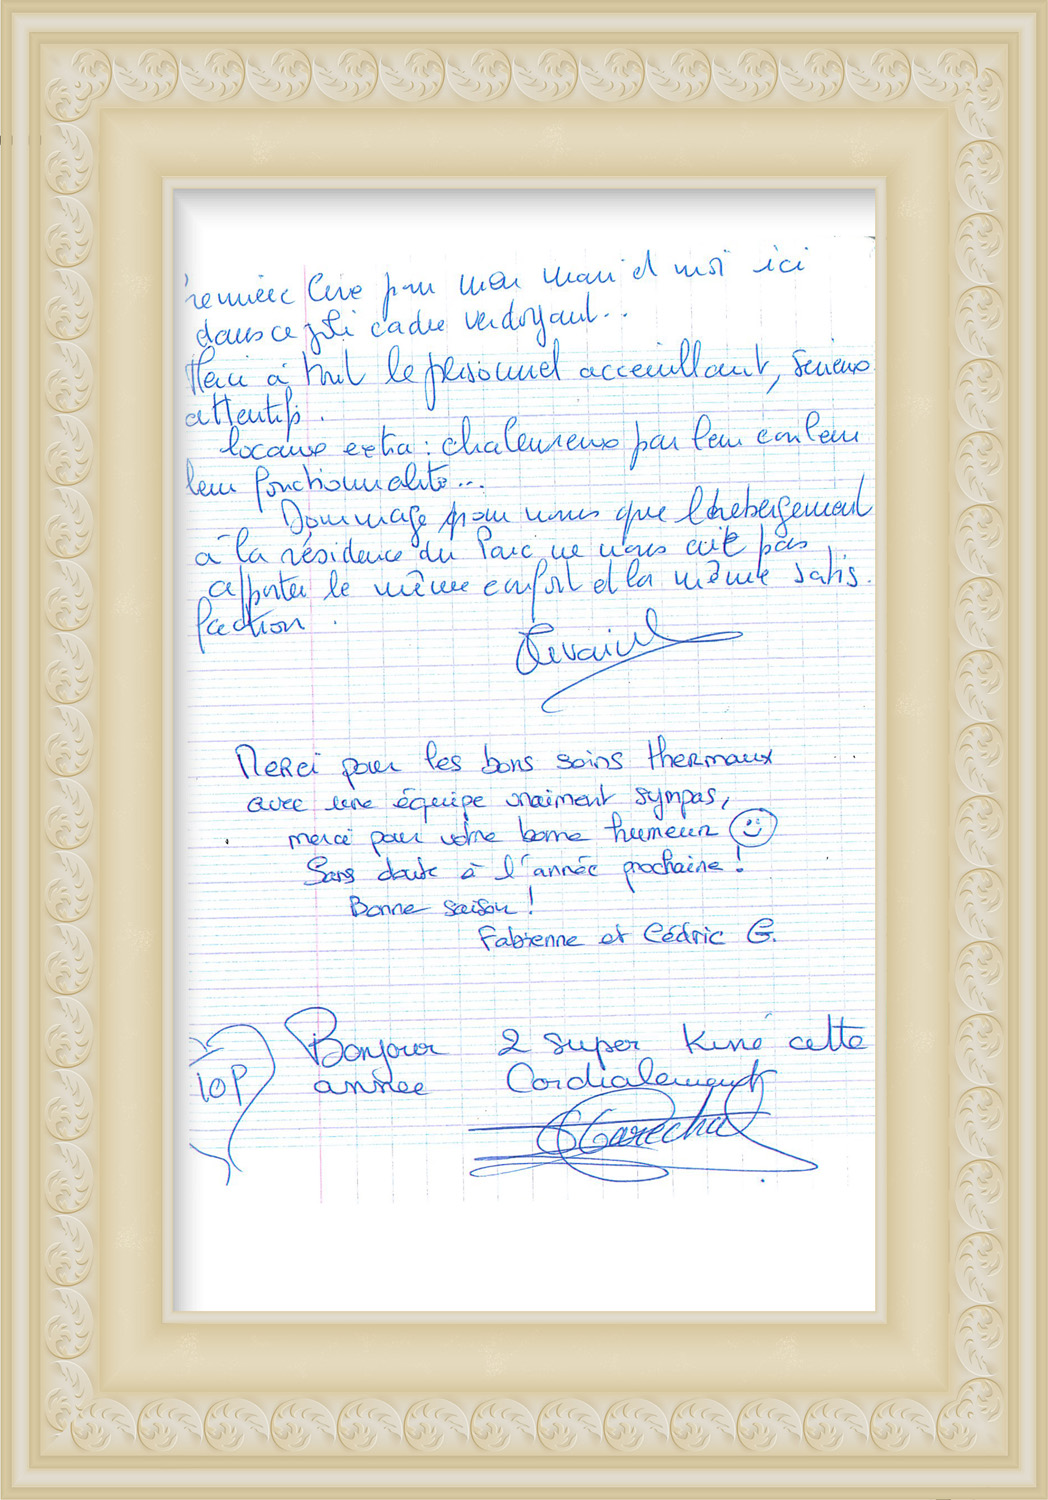 remière Cure pour mon mari et moi ici
dans ce joli cadre verdoyant...
Merci à tout le personnel acceuillant, serieux
attentifs.
locaux extra : chaleureux par leur couleur
leur fonctionnalité...
Dommage pour nous que l'hebergement
à la résidence du Parc ne nous ait pas
apporter le même confort et la même satis.
faction.
Merci pour les bons soins thermaux
avec une équipe vraiment sympas,
merci pour votre bonne humeur
Sans doute à l'année prochaine !
Bonne saison !
Fabienne et Cédric G.
Bonjour 2 super Kiné cette
TOP année Cordialement
Marechal